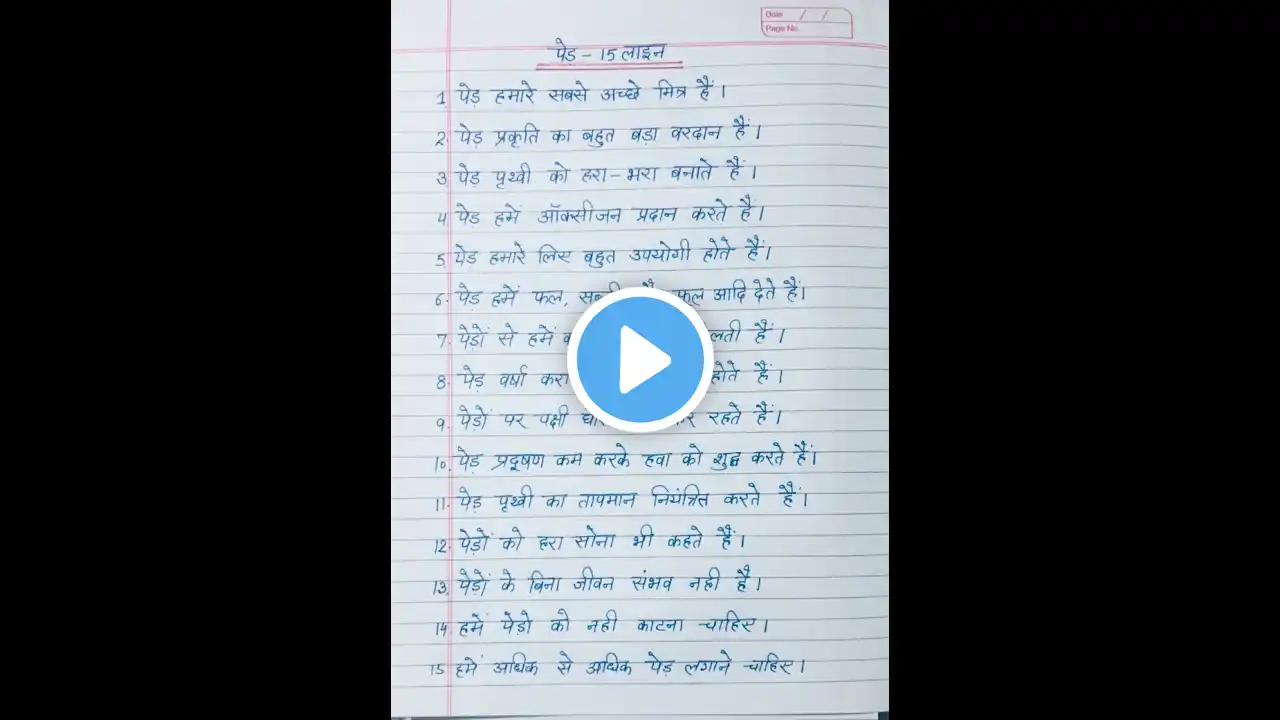 Date / /
Page No.
पेड़ - 15 लाइन
1. पेड़ हमारे सबसे अच्छे मित्र हैं।
2. पेड़ प्रकृति का बहुत बड़ा वरदान हैं।
3. पेड़ पृथ्वी को हरा-भरा बनाते हैं।
4 पेड हमें ऑक्सीजन प्रदान करते हैं।
5. पेड़ हमारे लिए बहुत उपयोगी होते हैं।
6. पेड़ हमें फल, फूल आदि देते हैं।
7. पेड़ों से हमें हैं।
8. पेड़ वर्षा होते हैं।
9. पेड़ों पर पक्षी रहते हैं।
10. पेड़ प्रदूषण कम करके हवा को शुद्ध करते हैं।
11. पेड़ पृथ्वी का तापमान नियंत्रित करते हैं।
12. पेड़ों को हरा सोना भी कहते हैं।
13. पेड़ों के बिना जीवन संभव नही है।
14. हमें पेड़ो को नही काटना चाहिए।
15 हमें अधिक से अधिक पेड़ लगाने चाहिए।